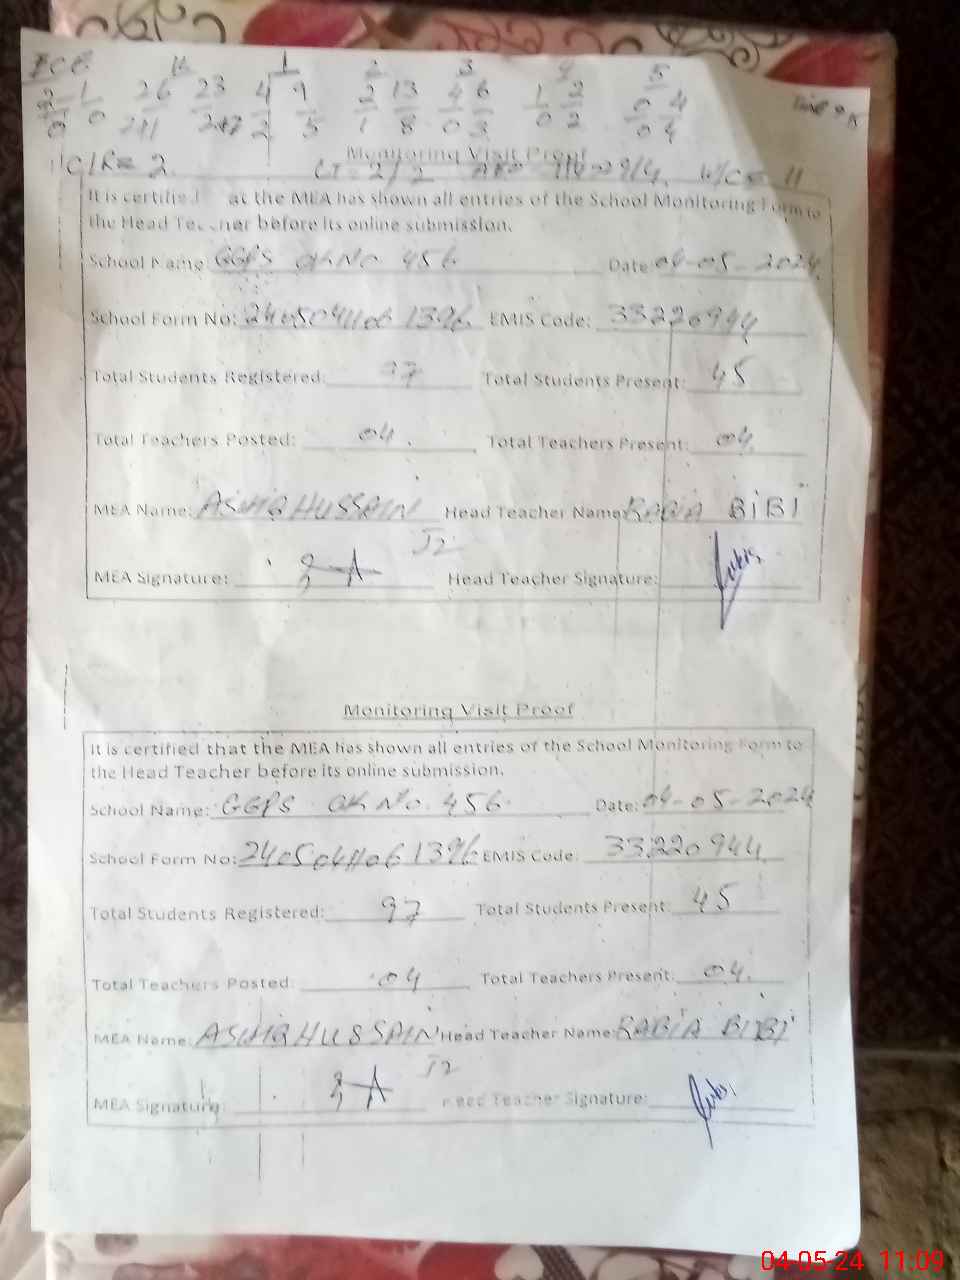 ECE K 1 2 3 4 5
2 1 26 23 4 9 2 13 4 6 1 2 0 4
0 0 2 5 1 8 0 3 0 2 0 4
C/R = 2 CT = 2/2 W/C = 11
Monitoring Visit Proof
It is certified at the MEA has shown all entries of the School Monitoring Form to
the Head Teacher before its online submission.
School Name GGPS CK NO 456 Date: 04-05-2024
School Form No: 2405041106 1396 EMIS Code: 33220944
Total Students Registered: 97 Total Students Present: 45
Total Teachers Posted: 04. Total Teachers Present: 04.
MEA Name: ASHIQ HUSSAIN Head Teacher Name: RABIA BIBI
J2
MEA Signature: Head Teacher Signature:
Monitoring Visit Proof
It is certified that the MEA has shown all entries of the School Monitoring Form to
the Head Teacher before its online submission.
School Name: GGPS CK No. 456. Date: 04-05-2024
School Form No: 2405041106 1396 EMIS Code: 33220944
Total Students Registered: 97 Total Students Present: 45
Total Teachers Posted: 04 Total Teachers Present: 04.
MEA Name: ASHIQ HUSSAIN Head Teacher Name: RABIA BIBI
J2
MEA Signature: Head Teacher Signature:
04-05-24 11:09